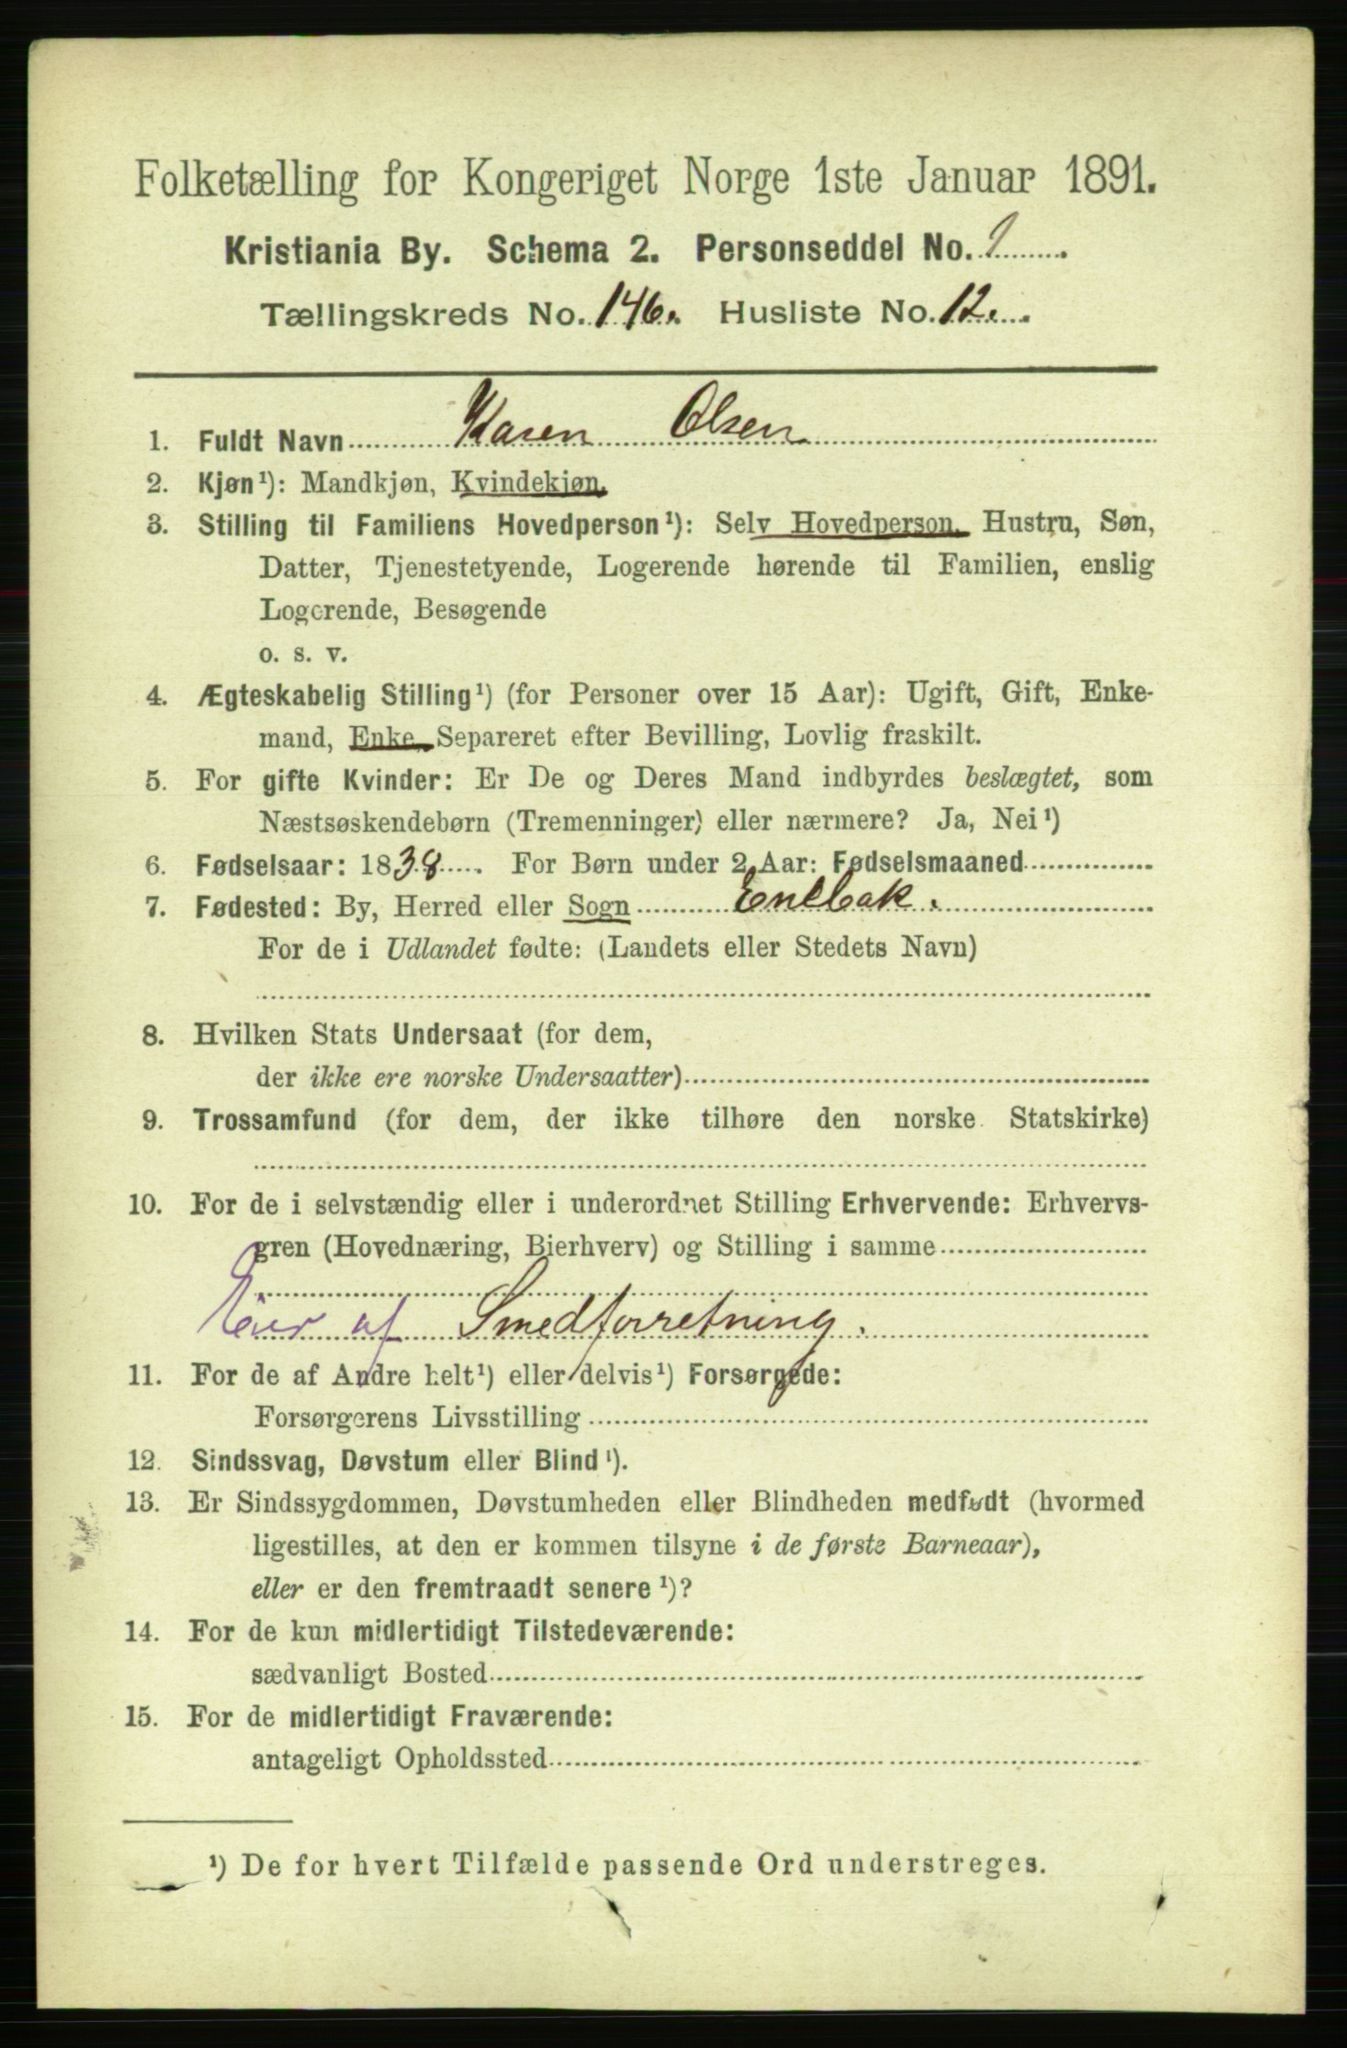 Folketælling for Kongeriget Norge 1ste Januar 1891.
Kristiania By. Schema 2. Personseddel No. 1
Tællingskreds No. 146. Husliste No. 12.
1. Fuldt Navn Karen Olsen
2. Kjøn¹): Mandkjøn, Kvindekjøn.
3. Stilling til Familiens Hovedperson¹): Selv Hovedperson, Hustru, Søn,
Datter, Tjenestetyende, Logerende hørende til Familien, enslig
Logerende, Besøgende
o. s. v.
4. Ægteskabelig Stilling¹) (for Personer over 15 Aar): Ugift, Gift, Enke-
mand, Enke, Separeret efter Bevilling, Lovlig fraskilt.
5. For gifte Kvinder: Er De og Deres Mand indbyrdes beslægtet, som
Næstsøskendebørn (Tremenninger) eller nærmere? Ja, Nei¹)
6. Fødselsaar: 1838. For Børn under 2 Aar: Fødselsmaaned
7. Fødested: By, Herred eller Sogn Enebak.
For de i Udlandet fødte: (Landets eller Stedets Navn)
8. Hvilken Stats Undersaat (for dem,
der ikke ere norske Undersaatter)
9. Trossamfund (for dem, der ikke tilhøre den norske Statskirke)
10. For de i selvstændig eller i underordnet Stilling Erhvervende: Erhvervs-
gren (Hovednæring, Bierhverv) og Stilling i samme
Eier af Smedforretning.
11. For de af Andre helt¹) eller delvis¹) Forsørgede:
Forsørgerens Livsstilling
12. Sindssvag, Døvstum eller Blind¹).
13. Er Sindssygdommen, Døvstumheden eller Blindheden medfødt (hvormed
ligestilles, at den er kommen tilsyne i de første Barneaar),
eller er den fremtraadt senere¹)?
14. For de kun midlertidigt Tilstedeværende:
sædvanligt Bosted
15. For de midlertidigt Fraværende:
antageligt Opholdssted
¹) De for hvert Tilfælde passende Ord understreges.